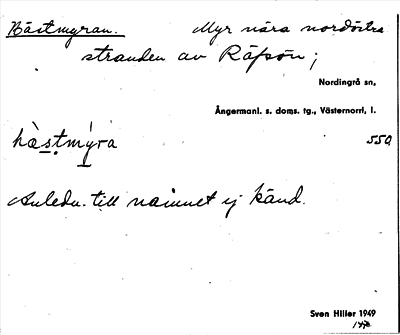 Hästmyran. Myr nära nordöstra
stranden av Räfsön;
Nordingrå sn,
Ångermanl. s. doms. tg., Västernorrl, l.
hàs̲ṭmy̲ra 550
Anledn. till namnet ej känd.
Sven Hiller 1949